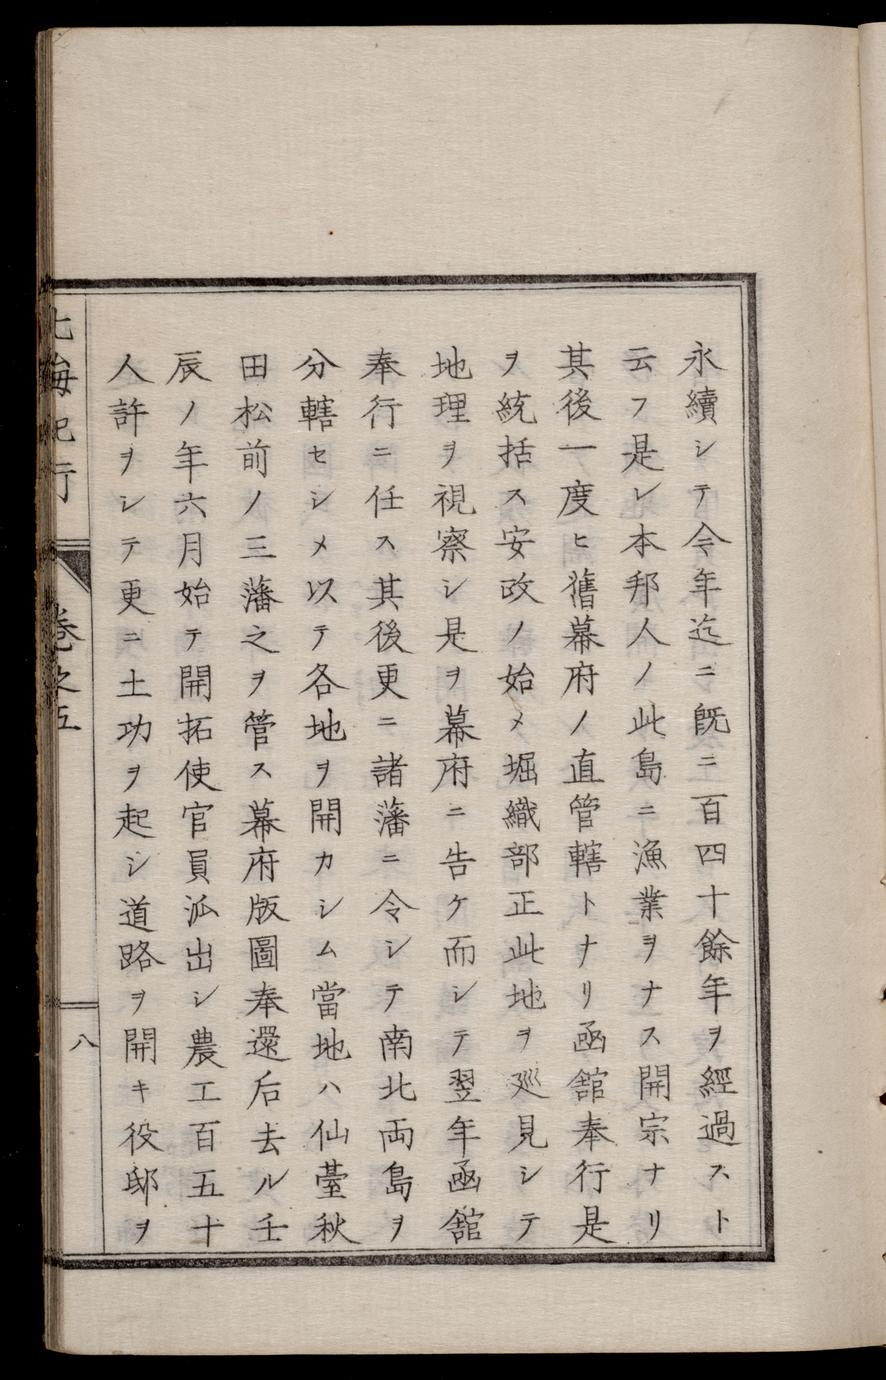 永續シテ今年迄ニ既ニ百四十餘年ヲ經過スト
云フ是レ本邦人ノ此島ニ漁業ヲナス開宗ナリ
其後一度ヒ舊幕府ノ直管轄トナリ函舘奉行是
ヲ統括ス安政ノ始メ堀織部正此地ヲ廵見シテ
地理ヲ視察シ是ヲ幕府ニ告ケ而シテ翌年函舘
奉行ニ任ス其後更ニ諸藩ニ令シテ南北両島ヲ
分轄セシメ以テ各地ヲ開カシム當地ハ仙臺秋
田松前ノ三藩之ヲ管ス幕府版圖奉還后去ル壬
辰ノ年六月始テ開拓使官員派出シ農工百五十
人許ヲシテ更ニ土功ヲ起シ道路ヲ開キ役邸ヲ
北海紀行
巻之五
八